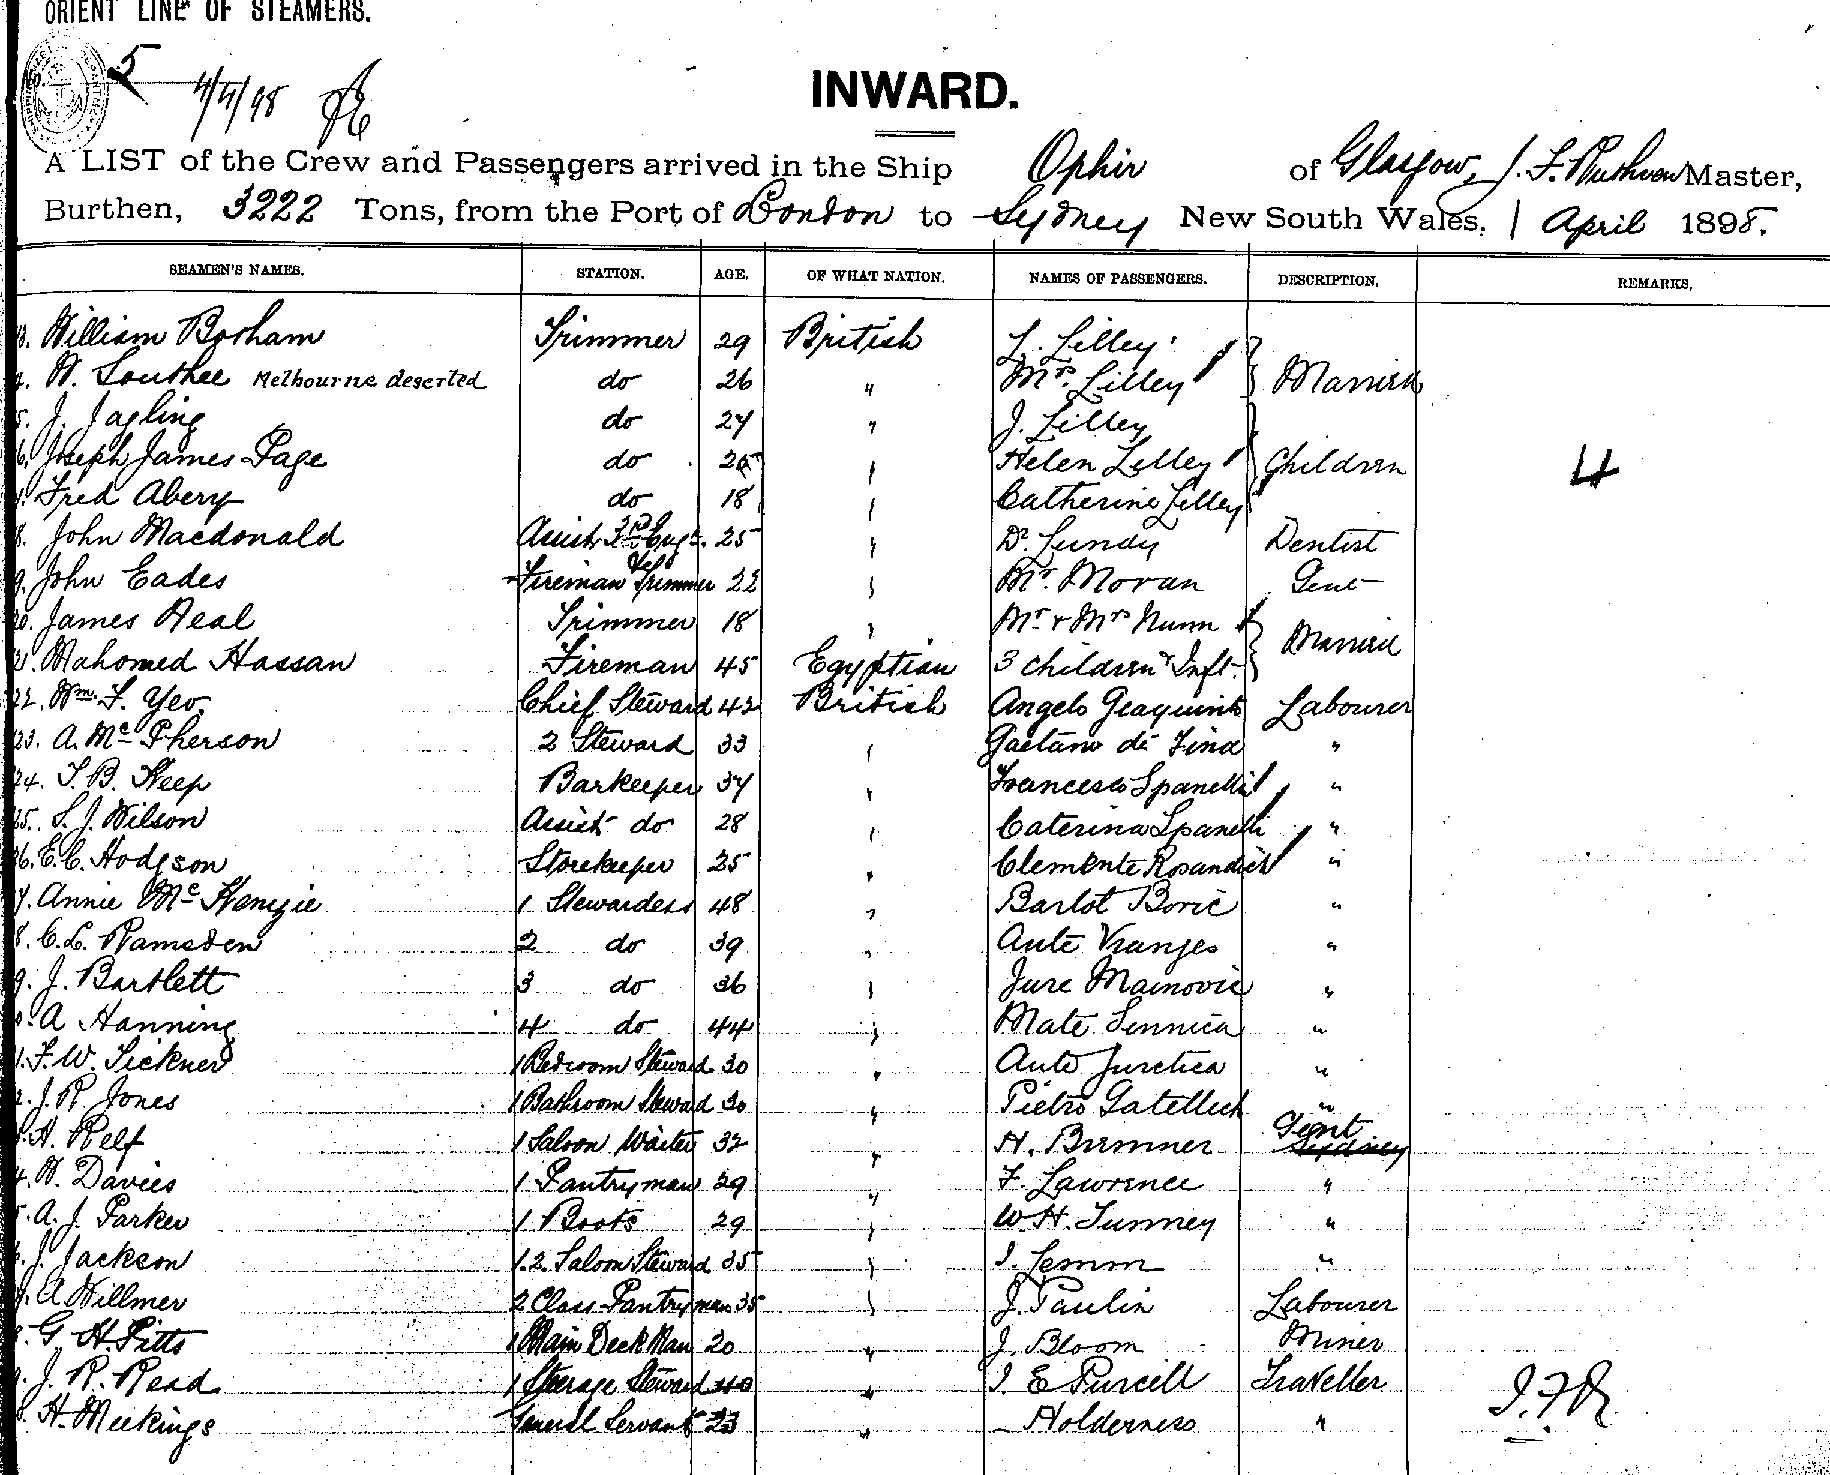 ORIENT LINE OF STEAMERS.
5
4/4/98
INWARD.
A LIST of the Crew and Passengers arrived in the Ship Ophir of Glasgow, J. F. Ruthven Master,
Burthen, 3222 Tons, from the Port of London to Sydney New South Wales, 1 April 1898.
SEAMEN'S NAMES. STATION. AGE. OF WHAT NATION. NAMES OF PASSENGERS. DESCRIPTION. REMARKS.
3. William Borham Trimmer 29 British L. Lilley
4. W. Southee Melbourne deserted do 26 " Mrs. Lilley Married
5. J. Jagling do 27 " J. Lilley
6. Joseph James Page do 25 " Helen Lilley Children 4
7. Fred Abery do 18 " Catherine Lilley
8. John Macdonald Assist 3rd Engr. 25 " Dr. Lundy Dentist
9. John Eades Fireman Trimmer 22 " Mr. Moran Gent
20. James Neal Trimmer 18 " Mr & Mrs Nunn Married
21. Mahomed Hassan Fireman 45 Egyptian 3 children & Inft.
22. Wm. F. Yeo Chief Steward 42 British Angelo Geaquinto Labourer
23. A. McPherson 2 Steward 33 " Gaetano di Fina "
24. T. B. Keep Barkeeper 37 " Francesco Spanelli "
25. S. J. Wilson Assist do 28 " Caterina Spanelli "
26. E. C. Hodgson Storekeeper 25 " Clemente Rosandich "
7. Annie McKenzie 1 Stewardess 48 " Bartol Boric "
8. C. L. Ramsden 2 do 39 " Ante Vranjes "
9. J. Bartlett 3 do 36 " Jure Mainovic "
0. A Hanning 4 do 44 " Mate Sinnica "
1. F. W. Tickner 1 Bedroom Steward 30 " Ante Juretica "
2. J. R. Jones 1 Bathroom Steward 30 " Pietro Gatellich "
3. H. Relf 1 Saloon Waiter 32 " H. Brimner Gent Sydney
4. W. Davies 1 Pantryman 29 " F. Lawrence "
5. A. J. Parker 1 Boots 29 " W. H. Tunney "
6. J. Jackson 1.2. Saloon Steward 35 " I. Lemm "
7. A Willmer 2 Class Pantryman 35 " J. Paulin Labourer
8. G. H. Pitts 1 Main Deck Man 20 " J. Bloom Miner
9. J. R. Read 1 Steerage Steward 40 " I. E Purcell Traveller J.F.R.
0. H. Meekings General Servant 23 " — Holderness "